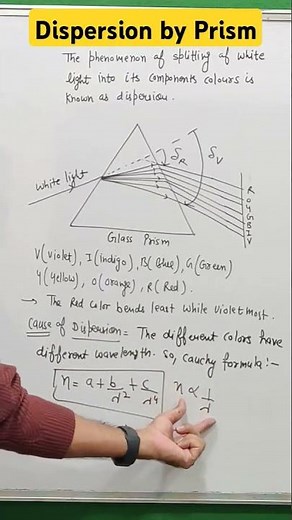 Dispersion by Prism
The phenomenon of splitting of white
light into its components colours is
known as dispersion.
δR
δV
white light
R
O
Y
G
B
I
V
Glass Prism
V(violet), I(indigo), B(Blue), G(Green)
Y(Yellow), O(orange), R(Red).
→ The Red color bends least while violet most.
Cause of Dispersion = The different colors have
different wavelength. So, cauchy formula:-
n = a + b/λ² + c/λ⁴ n ∝ 1/λ